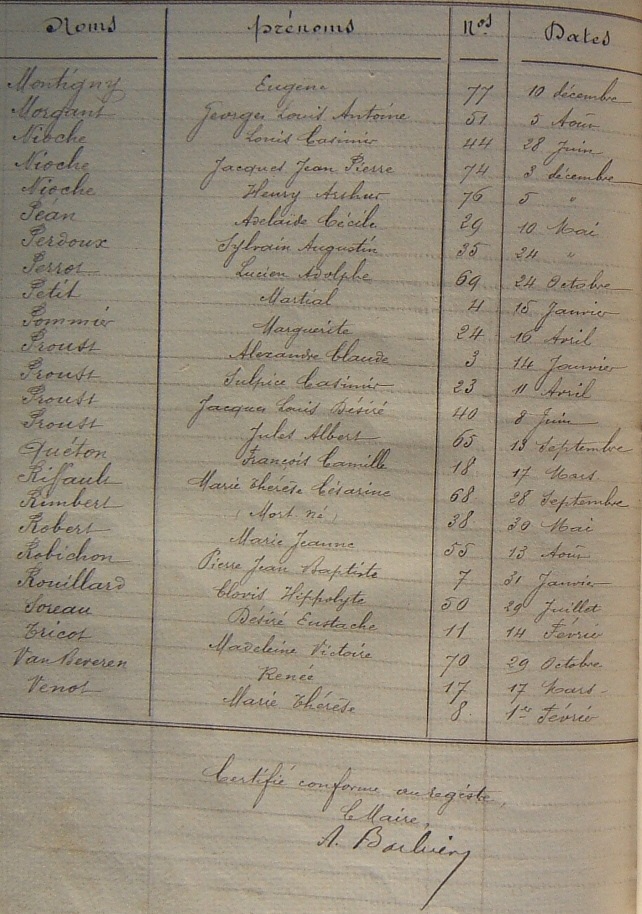 Noms Prénoms Nos Dates
Montigny Eugene 77 10 décembre
Morgant Georges Louis Antoine 51 5 Août
Nioche Louis Casimir 44 28 Juin
Nioche Jacques Jean Pierre 74 3 décembre
Nioche Henry Arthur 76 5 "
Péan Adelaide Cécile 29 10 Mai
Perdoux Sylvain Augustin 35 24 "
Perrot Lucien Adolphe 69 24 Octobre
Petit Martial 4 15 Janvier
Pommier Marguerite 24 16 Avril
Proust Alexandre Claude 3 14 Janvier
Proust Sulpice Casimir 23 11 Avril
Proust Jacques Louis Désiré 40 8 Juin
Proust Jules Albert 65 13 Septembre
Quéton François Camille 18 17 Mars
Riffault Marie Thérèse Césarine 68 28 Septembre
Rimbert (Mort né) 38 30 Mai
Robert Marie Jeanne 55 13 Août
Robichon Pierre Jean Baptiste 7 31 Janvier
Rouillard Clovis Hippolyte 50 29 Juillet
Soreau Désiré Eustache 11 14 Février
Tricot Madeleine Victoire 70 29 Octobre
Van Beveren Renée 17 17 Mars
Venot Marie Thérèse 8 1er Février
Certifié conforme au registre,
Maire,
A.